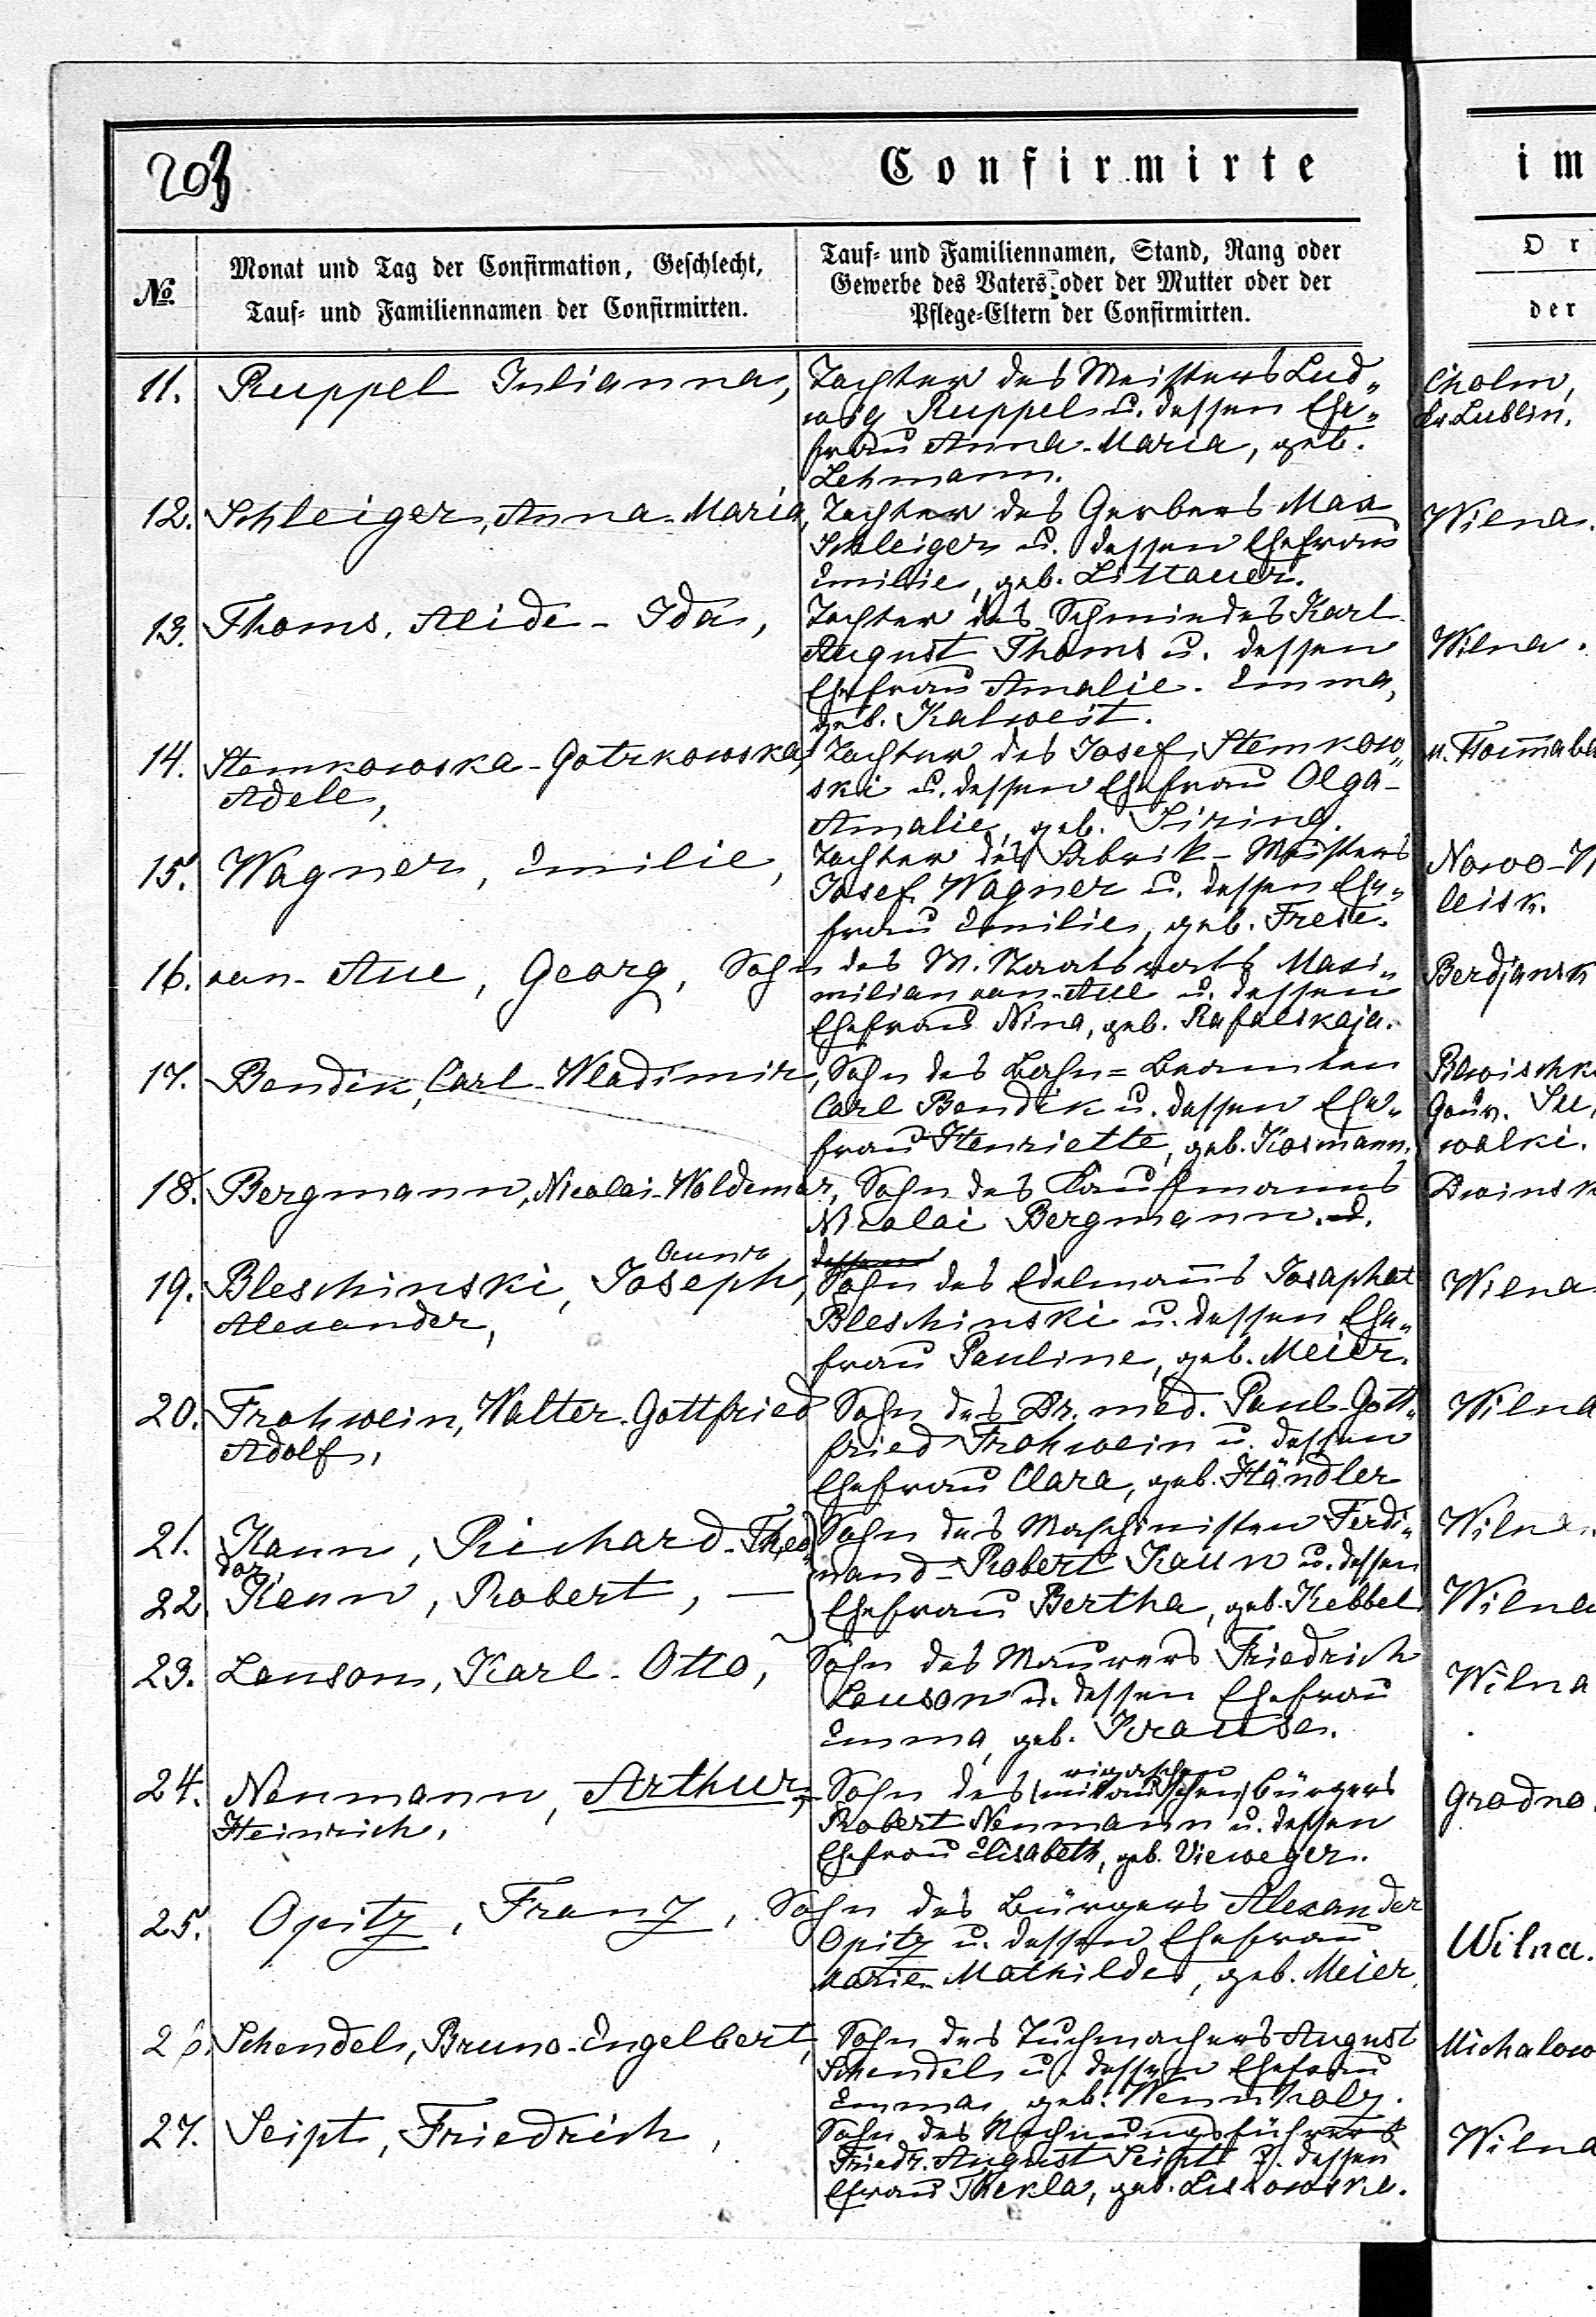 Confirmirte
im
No.
Monat und Tag der Confirmation, Geschlecht,
Tauf- und Familiennamen der Confirmirten.
Tauf- und Familiennamen, Stand, Rang oder
Gewerbe des Vaters oder der Mutter oder der
Pflege-Eltern der Confirmirten.
Or
der
11. Ruppel Julianna, Tochter des Meisters Lud„ Cholm,
wig Ruppel u. dessen Ehe„ Lublin.
frau Anna-Maria, geb.
Lehmann.
12. Schleiger, Anna-Maria, Tochter des Gerbers Max Wilna.
Schleiger u. dessen Ehefrau
Emilie, geb. Littauer.
13. Thoms, Alide-Ida, Tochter des Schmiedes Karl
August Thoms u. dessen Wilna.
Ehefrau Amalie-Emma,
geb. Kalweit.
14. Stemkowska-Gotrkowska, Tochter des Josef Stemkow„
Adele, ski u. dessen Ehefrau Olga-
Amalie, geb. Siring.
15. Wagner, Emilie, Tochter des Fabrik-Meisters Nowo-W
Josef Wagner u. dessen Ehe„ leisk.
frau Emilie, geb. Frese.
16. van-Aue, Georg, Sohn des W. Staatsrats Maxi„ Berdjansk
milian van-Aue u. dessen
Ehefrau Nina, geb. Rafalskaja.
17. Bendik, Carl-Wladimir, Sohn des Bahn=Beamten Pilwischk
Carl Bendik u. dessen Ehe„ Gouv. Su„
frau Henriette, geb. Kosmann. walki.
18. Bergmann, Nicolai-Woldemar, Sohn des Kaufmanns Dwinsk
Nicolai Bergmann. u.
dessen
19. Bleschinski, Joseph, Sohn des Edelmanns Josaphat Wilna
Alexander, Bleschinski u. dessen Ehe„
frau Pauline, geb. Meier.
20. Frohwein, Walter-Gottfried Sohn des Dr. med. Paul-Gott„ Wilna
Adolf, fried Frohwein u. dessen
Ehefrau Clara, geb. Händler
21. Kaun, Richard-Theo„ Sohn des Maschinisten Ferdi„ Wilna.
dor, nand-Robert Kaun u. dessen
22 Kaun, Robert, — Ehefrau Bertha, geb. Kebbel Wilna
23. Lauson, Karl-Otto, Sohn des Maurers Friedrich Wilna
Lauson u. dessen Ehefrau
Emma, geb. Krause.
rigaschen
24. Neumann, Arthur, Sohn des (mitauschen) Bürgers Grodno.
Heinrich, Robert Neumann u. dessen
Ehefrau Elisabeth, geb. Vieweger.
25. Opitz, Franz, Sohn des Bürgers Alexander
Opitz u. dessen Ehefrau Wilna.
Marie-Mathilde, geb. Meier.
26. Schendel, Bruno-Engelbert, Sohn des Tuchmachers August Michalow
Schendel u. dessen Ehefrau
Emma, geb. Wennholz.
27. Seipt, Friedrich, Sohn des Rechnungsführers Wilna
Friedr. August Seipt u. dessen
Ehefrau Thekla, geb. Lissowska.